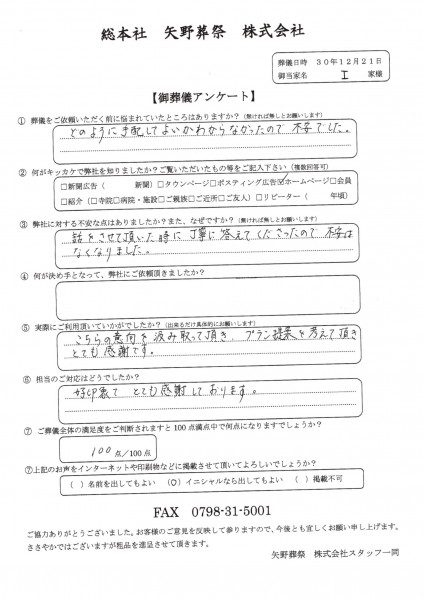 総本社 矢野葬祭 株式会社
葬儀日時 30年12月21日
御当家名 I 家様
【御葬儀アンケート】
① 葬儀をご依頼いただく前に悩まれていたところはありますか?(無ければ無しとお願いします)
どのように手配してよいかわからなかったので 不安でした。
② 何がキッカケで弊社を知りましたか?ご覧いただいたもの等をご記入下さい(複数回答可)
□新聞広告( 新聞)□タウンページ□ポスティング広告☑ホームページ□会員
□紹介(□寺院□病院・施設□ご親族□ご近所□ご友人)□リピーター( 年頃)
③ 弊社に対する不安な点はありましたか?また、なぜですか?(無ければ無しとお願いします)
話をさせて頂いた時に丁寧に答えてくださったので 不安は
なくなりました。
④ 何が決め手となって、弊社にご依頼頂きましたか?
⑤ 実際にご利用頂いていかがでしたか?(出来るだけ具体的にお願いします)
こちらの意向を汲み取って頂き、プラン提案を考えて頂き
とても感謝です。
⑥ 担当のご対応はどうでしたか?
好印象で とても感謝しております。
⑦ ご葬儀全体の満足度をご判断されますと100点満点中で何点になりますでしょうか?
100点/100点
⑦上記のお声をインターネットや印刷物などに掲載させて頂いてよろしいでしょうか?
( )名前を出してもよい (○)イニシャルなら出してもよい ( )掲載不可
FAX 0798-31-5001
ご協力ありがとうございました。お客様のご意見を反映して参りますので、今後とも宜しくお願い申し上げます。
ささやかではございますが粗品を進呈させて頂きます。
矢野葬祭 株式会社スタッフ一同